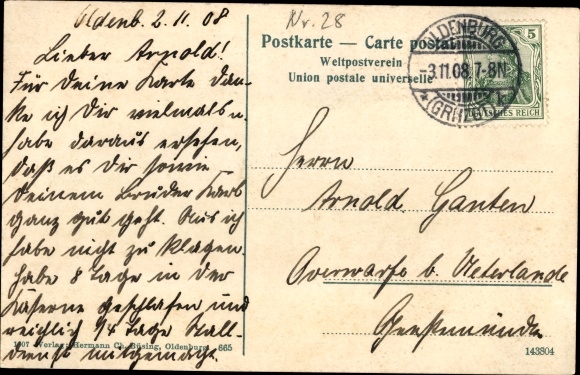 Oldenb. 2. 11. 08
Lieber Arnold!
Für Deine Karte dan-
ke ich Dir vielmals u.
habe daraus ersehen,
daß es Dir sowie
Deinem Bruder Karl
ganz gut geht. Auch ich
habe nicht zu klagen.
Habe 8 Tage in der
Kaserne geschlafen und
reichlich 14 Tage Stall-
dienst mitgemacht.
1907 Verlag: Hermann Ch. Büsing, Oldenburg 665
Nr. 28
Postkarte — Carte postale
Weltpostverein
Union postale universelle
OLDENBURG
-3.11.08.7-8N
*(GRHZGT.)*
5
DEUTSCHES REICH
Herrn
Arnold Ganten
Overwarfe b. Ueterlande
Geestemünde
143804